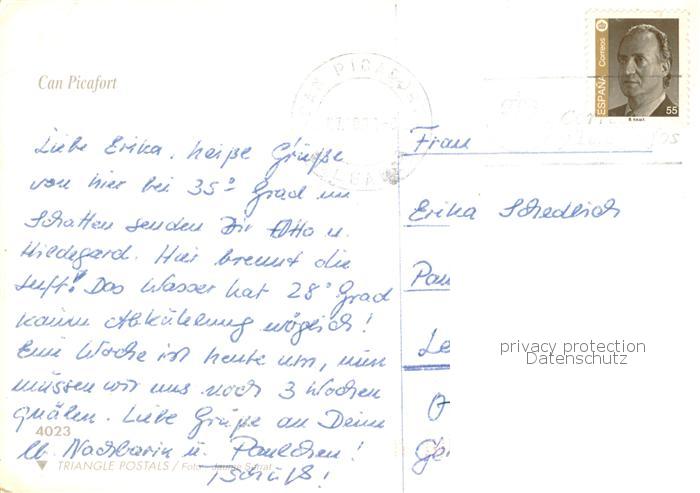 Can Picafort
CAN PICAFORT
ESPAÑA
Correos
55
Liebe Erika, heiße Grüße
von hier bei 35° Grad im
Schatten senden Dir Otto u.
Hildegard. Hier brennt die
Luft! Das Wasser hat 28° Grad
kaum Abkühlung möglich!
Eine Woche ist heute um, nun
müssen wir uns noch 3 Wochen
quälen. Liebe Grüße an Deine
lb. Nachbarin u. Paulchen!
Tschüß!
4023
TRIANGLE POSTALS / Foto: Jaume Serrat
Frau
Erika Schedlich
Pau
Le
privacy protection
Datenschutz